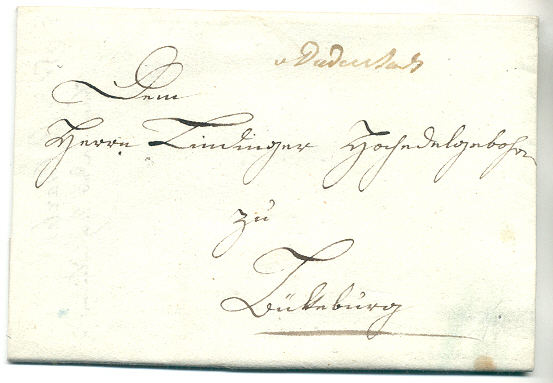 v Duderstadt
Dem
Herrn Tindinger Hochedelgebohrn
zu
Bückeburg